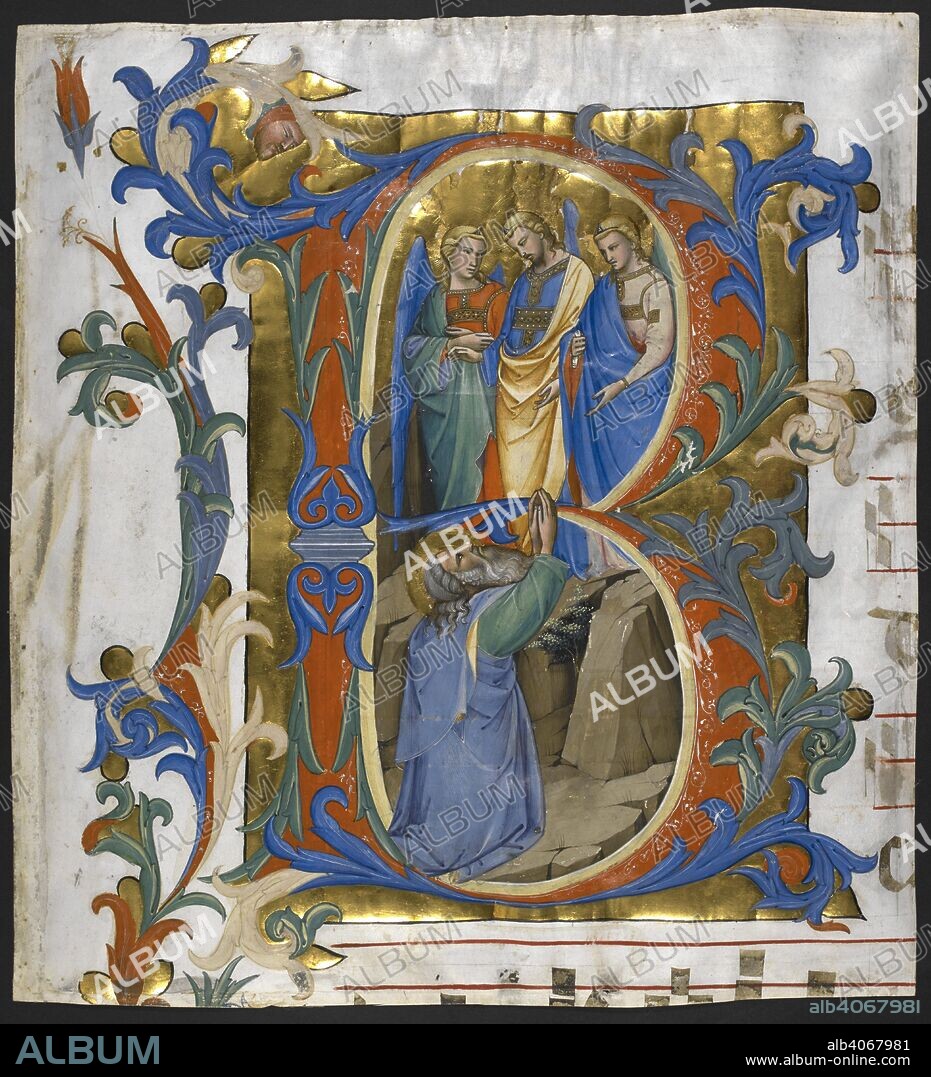 B
ALBUM
alb4067981
ALBUM
alb4067981
www.album-online.com